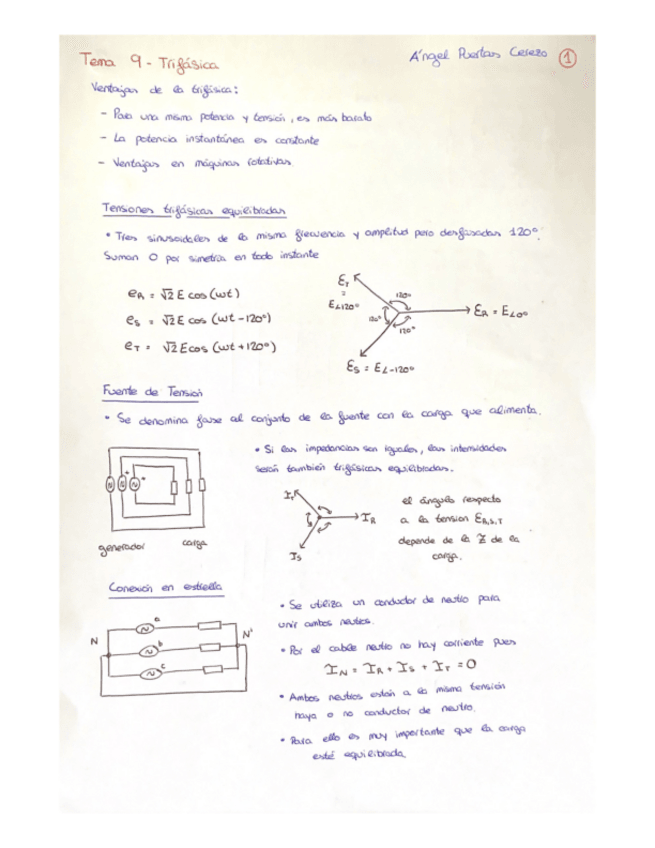 Tema 9 - Trifásica
Ángel Puertas Cerezo 1
Ventajas de la trifásica:
- Para una misma potencia y tensión, es más barato
- La potencia instantánea es constante
- Ventajas en máquinas rotativas
Tensiones trifásicas equilibradas
• Tres sinusoidales de la misma frecuencia y amplitud pero desfasadas 120º.
Suman 0 por simetría en todo instante
e_R = √2 E cos (ωt)
e_S = √2 E cos (ωt - 120º)
e_T = √2 E cos (ωt + 120º)
Ɛ_T
=
E∠120º
120º
120º
120º
Ɛ_R = E∠0º
Ɛ_S = E∠-120º
Fuente de Tensión
• Se denomina fase al conjunto de la fuente con la carga que alimenta.
generador
carga
• Si las impedancias son iguales, las intensidades
serán también trifásicas equilibradas.
I_T
I_R
I_S
el ángulo respecto
a la tension Ɛ_R,S,T
depende de la Z de la
carga.
Conexión en estrella
N
a
b
c
N'
• Se utiliza un conductor de neutro para
unir ambos neutros.
• Por el cable neutro no hay corriente pues
I_N = I_R + I_S + I_T = 0
• Ambos neutros están a la misma tensión
haya o no conductor de neutro.
• Para ello es muy importante que la carga
esté equilibrada